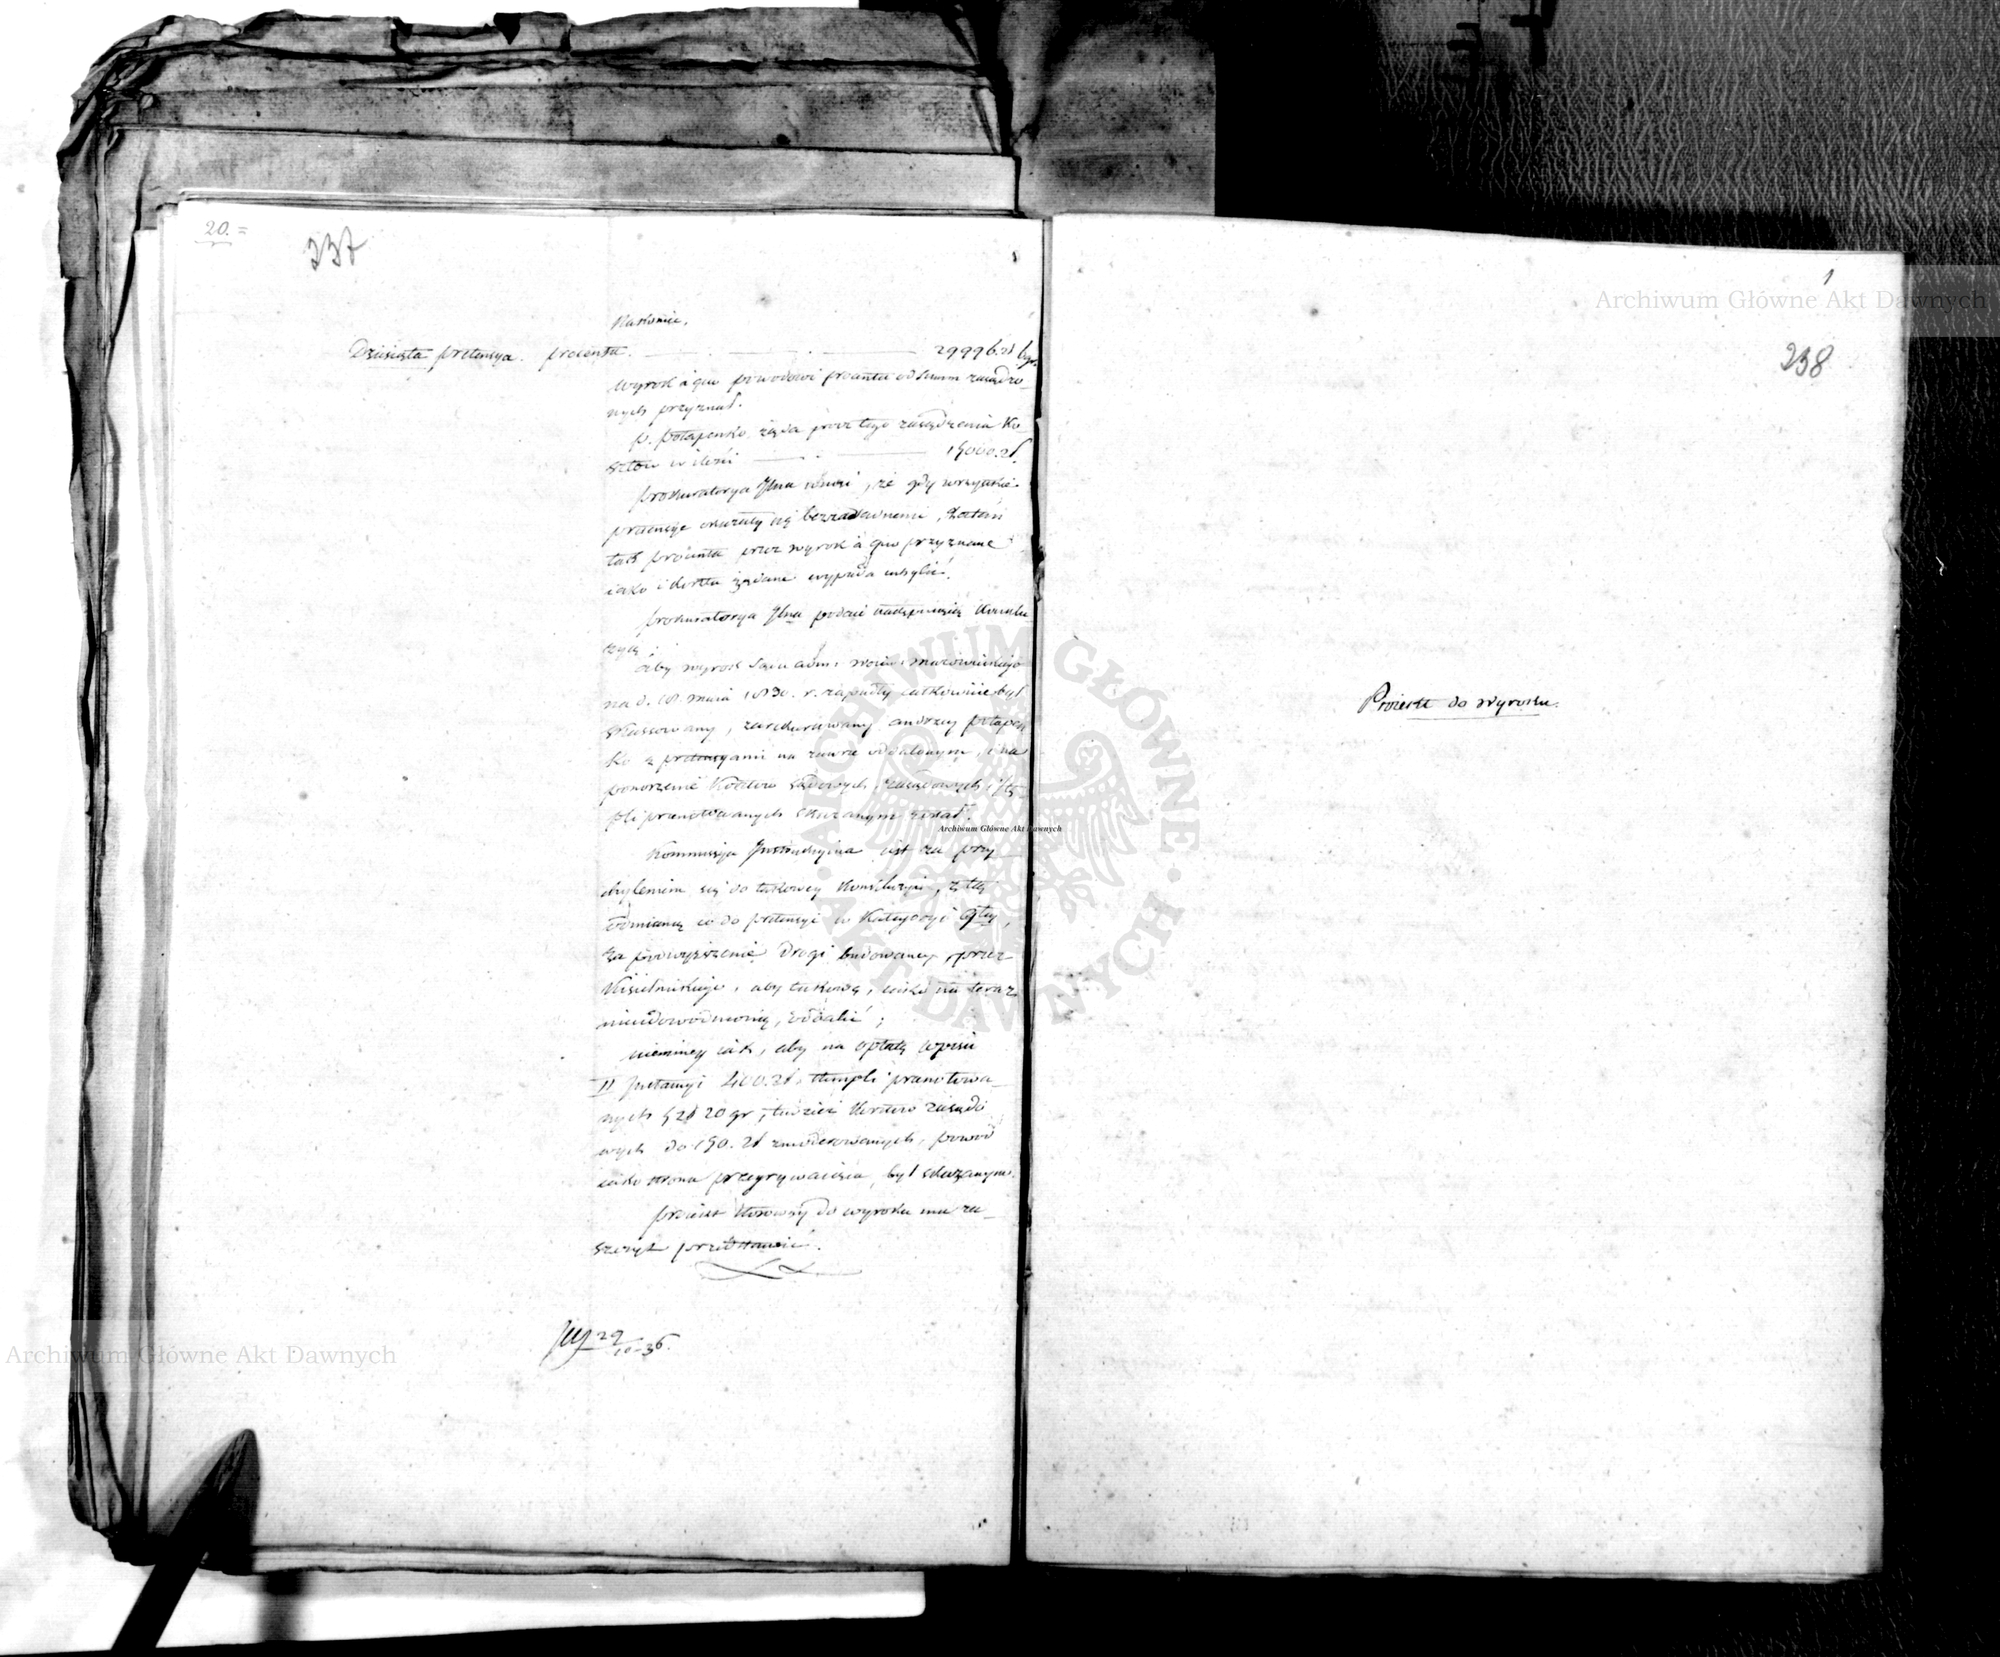 20.=
237
Nakoniec,
Dziesiąta pretensya. procenta. 29996. zł 6 gr.
Wyrok à quo powodowi procenta od summ zasądzo-
nych przyznał.
P. Potapenko żąda prócz tego zasądzenia ko-
sztów w ilości 15000. zł.
Prokuratorya Jlna wnosi, że gdy wszystkie
pretensye okazały się bezzasadnemi,
procenta przez wyrok à quo przyznane
iako i koszta żądane wypada uchylić.
Prokuratorya Jlna podaie następuiącą konklu-
zyą:
Aby wyrok Sądu adm: woiew: Mazowieckiego
na d. 18. maia 1830. r. zapadły całkowicie był
skassowany, zarekurowany Andrzey Potapen-
ko z pretensyami na zawsze oddalonym, i na
ponoszenie kosztów sądowych, i stę-
pli prenotowanych skazanym został.
Kommissya Instrukcyina iest za przy-
chyleniem się do takowey konkluzyi, z tą
odmianą co do pretensyi w kategoryi 9tey,
za podwyższenie drogi budowaney przez
Kisielnickiego, aby takową, iako na teraz
nieudowodnioną, oddalić;
niemniey iak, aby na opłatę wpisu
II Instancyi 400. zł, stempli prenotowa-
nych 5 zł 20 gr, tudzież kosztów
do 150. zł zmoderowanych, powód
iako strona przegrywaiąca, był skazanym.
Proiekt stosowny do wyroku ma za-
szczyt przedstawić.
29
10 36.
1
238
Proiekt do Wyroku.
Archiwum Główne Akt Dawnych
Archiwum Główne Akt Dawnych
Archiwum Główne Akt Dawnych
ARCHIWUM GŁÓWNE AKT DAWNYCH